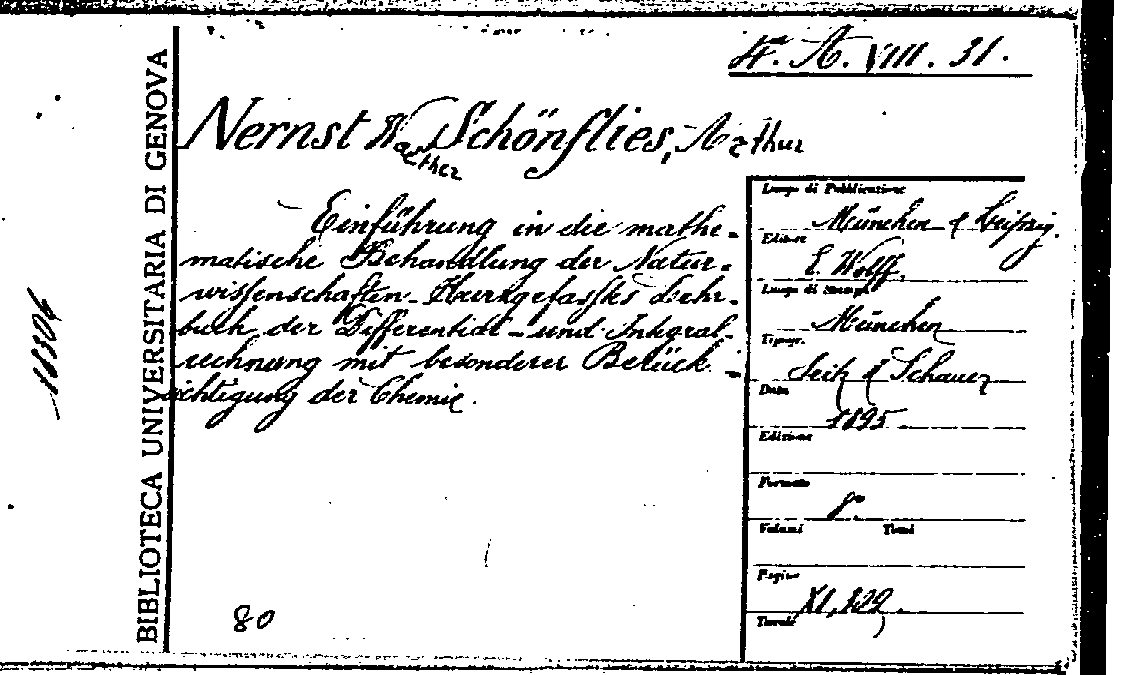 F. A. VIII. 31.
BIBLIOTECA UNIVERSITARIA DI GENOVA
Nernst Walther Schönflies, Arthur
Einführung in die mathe-
matische Behandlung der Natur-
wissenschaften - Kurzgefasstes Lehr-
buch der Differential- und Integral-
rechnung mit besonderer Berück-
sichtigung der Chemie.
Luogo di Pubblicazione
München & Leipzig.
Editore
E. Wolff.
Luogo di Stampa
München
Tipogr.
Seitz & Schauer
Data
1895
Edizione
Formato
8°
Volumi Tomi
Pagine
XI,
Tavole
80